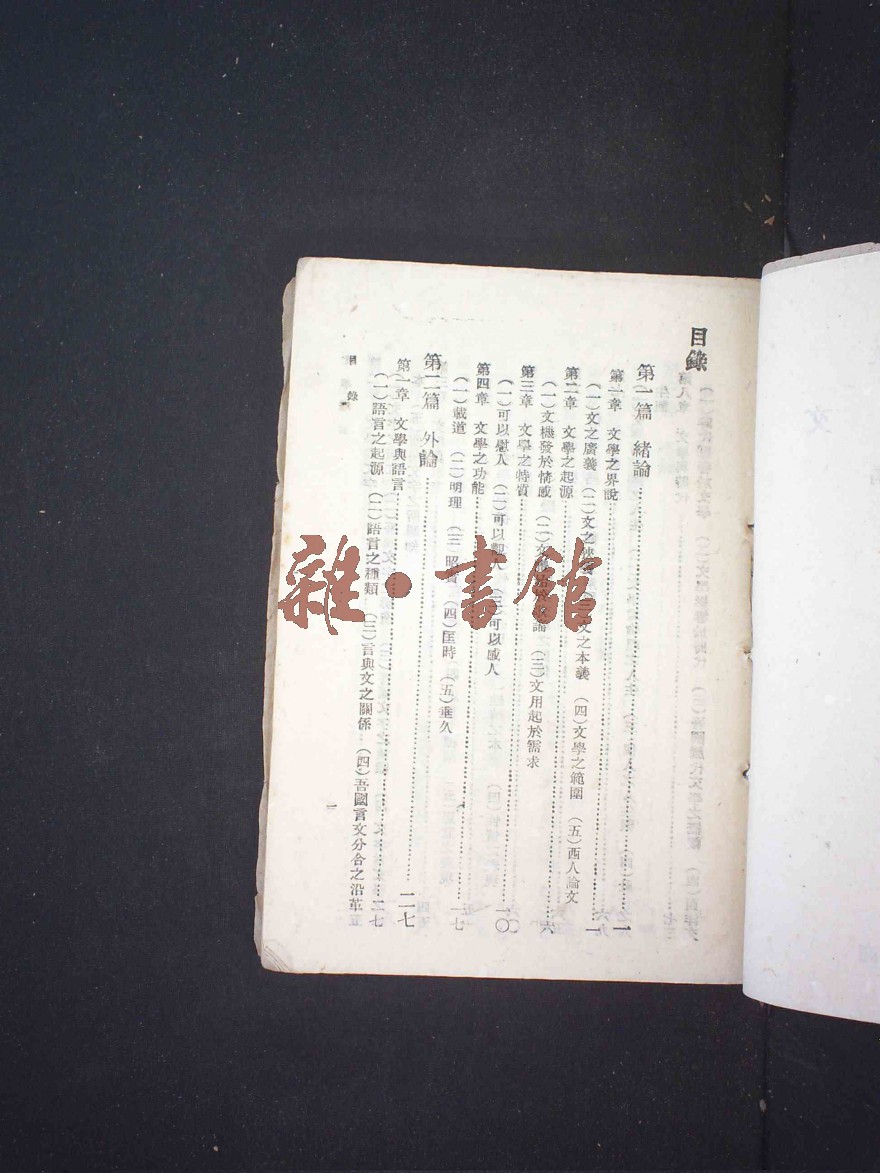 目錄
第一篇 緒論……一
第一章 文學之界說……一
（一）文之廣義 （二）文之 義 （三）文之本義 （四）文學之範圍 （五）西人論文
第二章 文學之起源……六
（一）文機發於情感 （二）文 （三）文用起於需求
第三章 文學之特質……一〇
（一）可以慰人 （二）可以觀人 （三）可以感人
第四章 文學之功能……一七
（一）載道 （二）明理 （三）昭實 （四）匡時 （五）垂久
第二篇 外論……二七
第一章 文學與語言……二七
（一）語言之起源 （二）語言之種類 （三）言與文之關係 （四）吾國言文分合之沿革
目錄
一
雜·書館
文